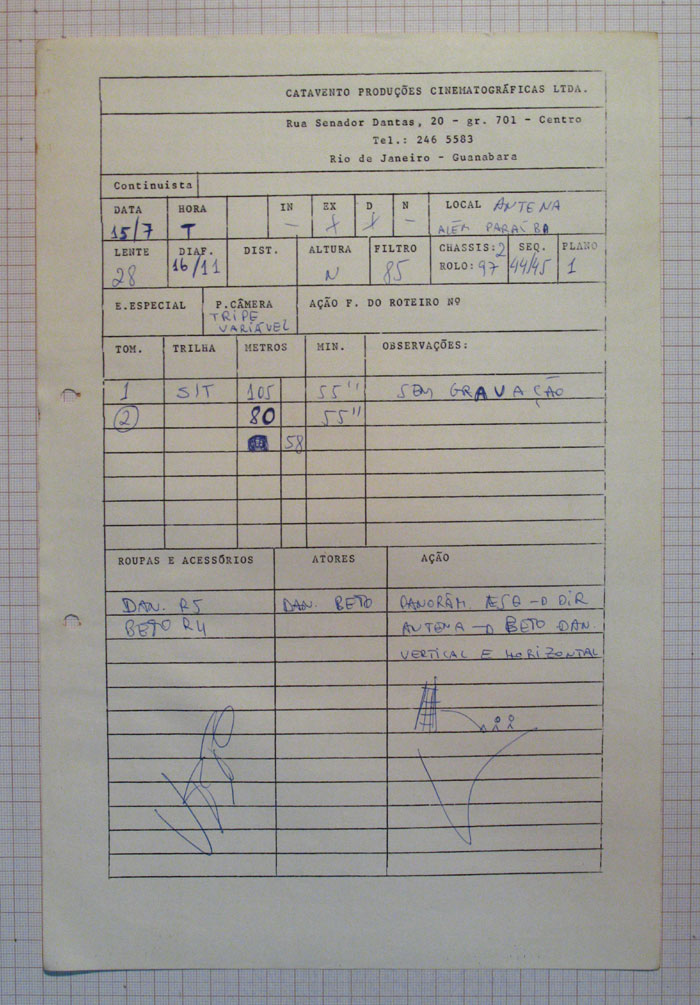 CATAVENTO PRODUÇÕES CINEMATOGRÁFICAS LTDA.
Rua Senador Dantas, 20 - gr. 701 - Centro
Tel.: 246 5583
Rio de Janeiro - Guanabara
Continuista
DATA HORA IN EX D N LOCAL ANTENA
15/7 T — X X — ALÉM PARAÍBA
LENTE DIAF. DIST. ALTURA FILTRO CHASSIS: 2 SEQ. PLANO
28 16/11 N 85 ROLO: 97 44/45 1
E.ESPECIAL P.CÂMERA AÇÃO F. DO ROTEIRO Nº
TRIPE
VARIÁVEL
TOM. TRILHA METROS MIN. OBSERVAÇÕES:
1 S/T 105 55" SEM GRAVAÇÃO
2 80 55"
58
ROUPAS E ACESSÓRIOS ATORES AÇÃO
DAN. R5 DAN. BETO PANORÂM. DIR
BETO R4 ANTENA BETO DAN.
VERTICAL E HORIZONTAL